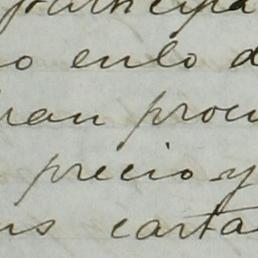 participa
o enlo d
ran procu
precio y
us carta